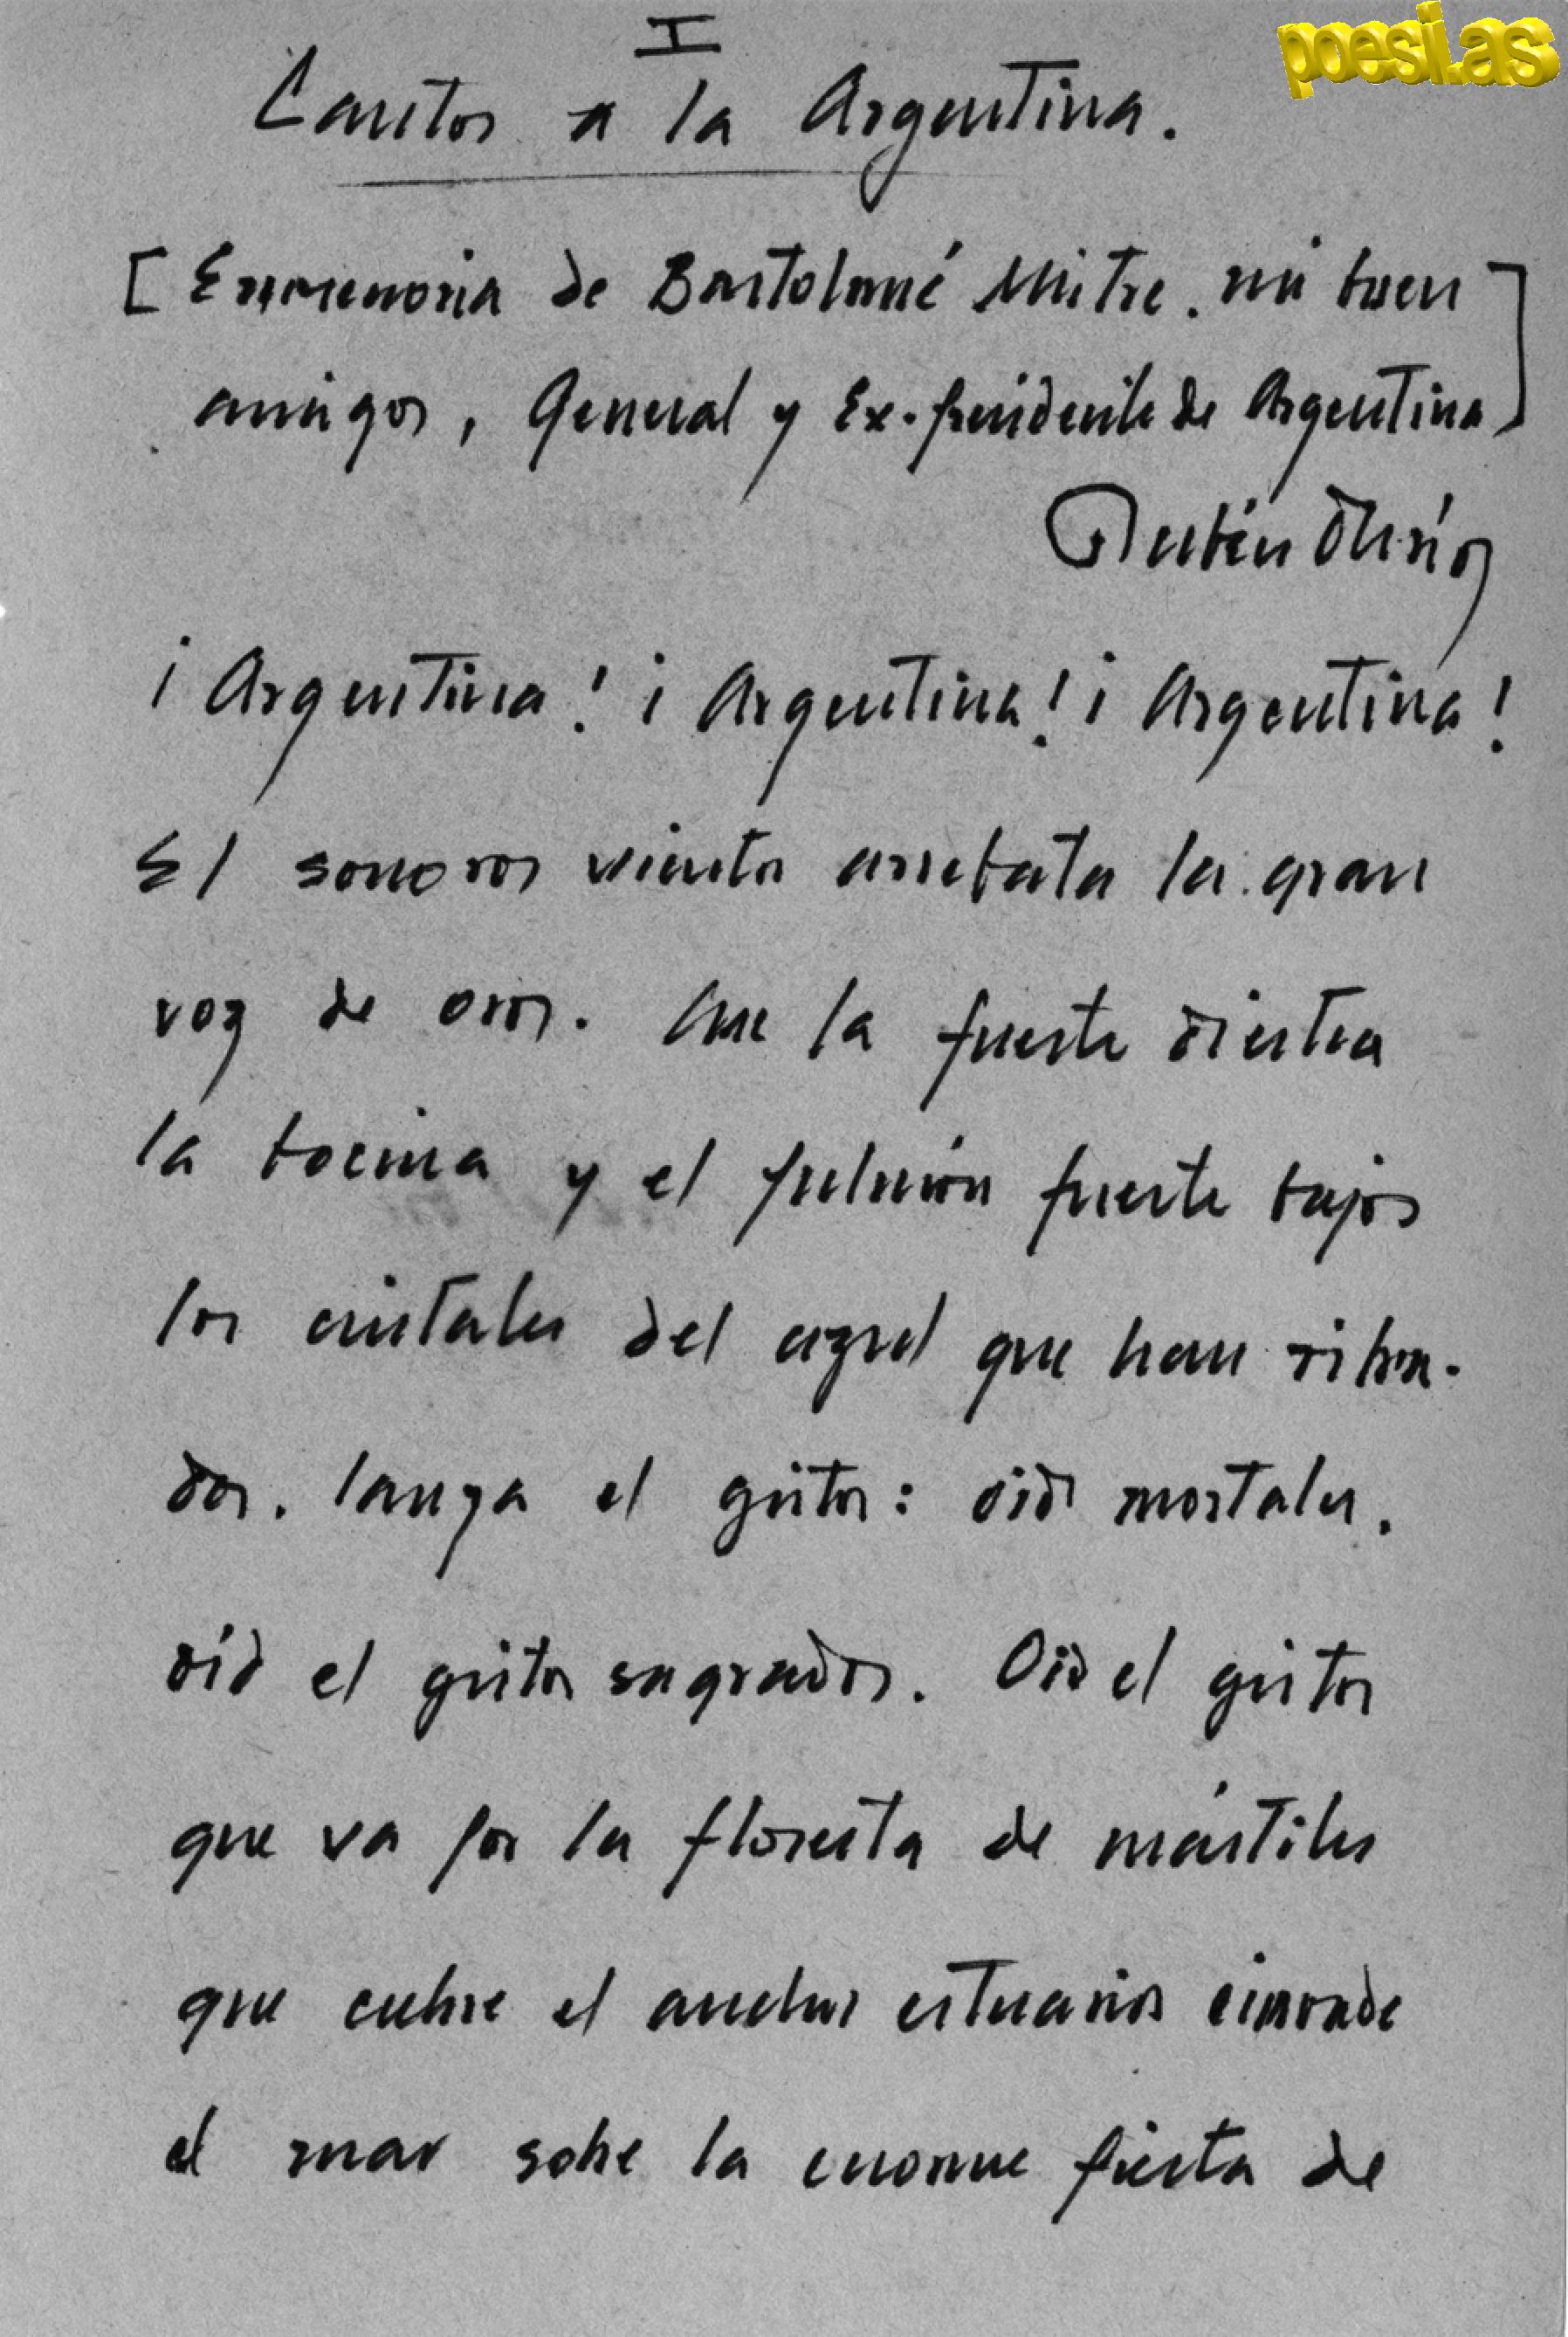 poesi.as
I
Canto a la Argentina.
[En memoria de Bartolomé Mitre. mi buen
amigo, General y Ex-presidente de Argentina]
Rubén Darío
¡Argentina! ¡Argentina! ¡Argentina!
El sonoro viento arrebata la gran
voz de oro. Ase la fuerte diestra
la bocina y el pulmón fuerte bajo
los cristales del azul que han vibra-
do. lanza el grito: oíd mortales.
oíd el grito sagrado. Oid el grito
que va por la floresta de mástiles
que cubre el ancho estuario e invade
el mar sobre la enorme fiesta de